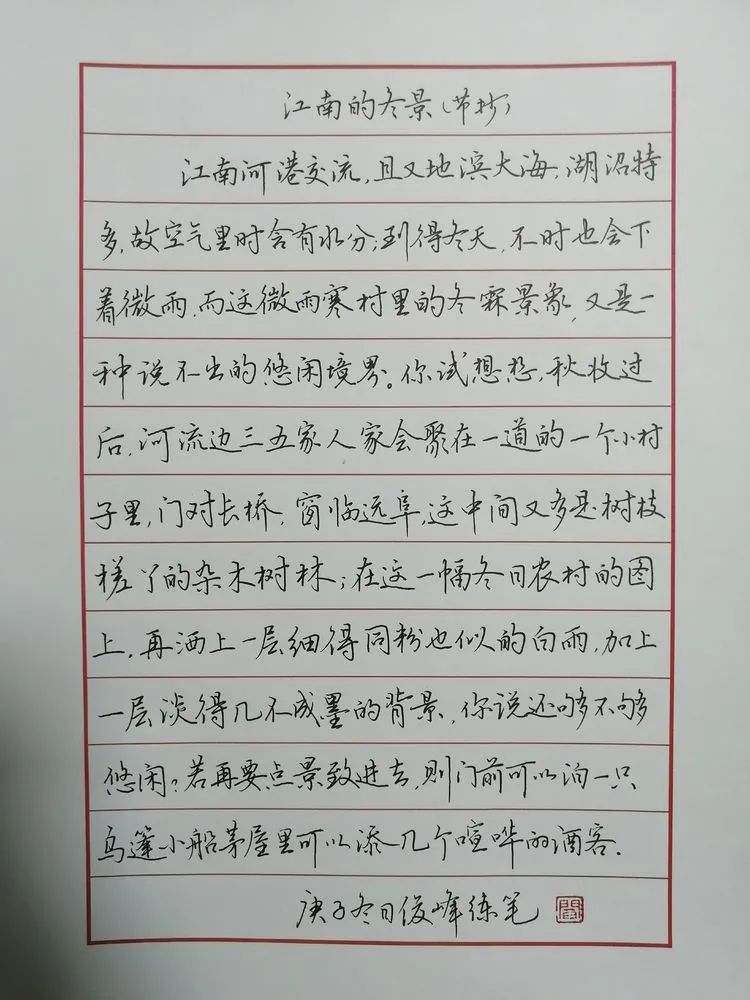 江南的冬景(节抄)
江南河港交流,且又地滨大海,湖沼特
多,故空气里时含有水分;到得冬天,不时也会下
着微雨,而这微雨寒村里的冬霖景象,又是一
种说不出的悠闲境界。你试想想,秋收过
后,河流边三五家人家会聚在一道的一个小村
子里,门对长桥,窗临远阜,这中间又多是树枝
槎丫的杂木树林;在这一幅冬日农村的图
上,再洒上一层细得同粉也似的白雨,加上
一层淡得几不成墨的背景,你说还够不够
悠闲?若再要点景致进去,则门前可以泊一只
乌篷小船茅屋里可以添几个喧哗的酒客.
庚子冬日俊峰练笔